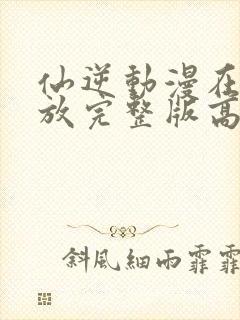 仙逆動漫在
放完整版高
斜風細雨霏霏